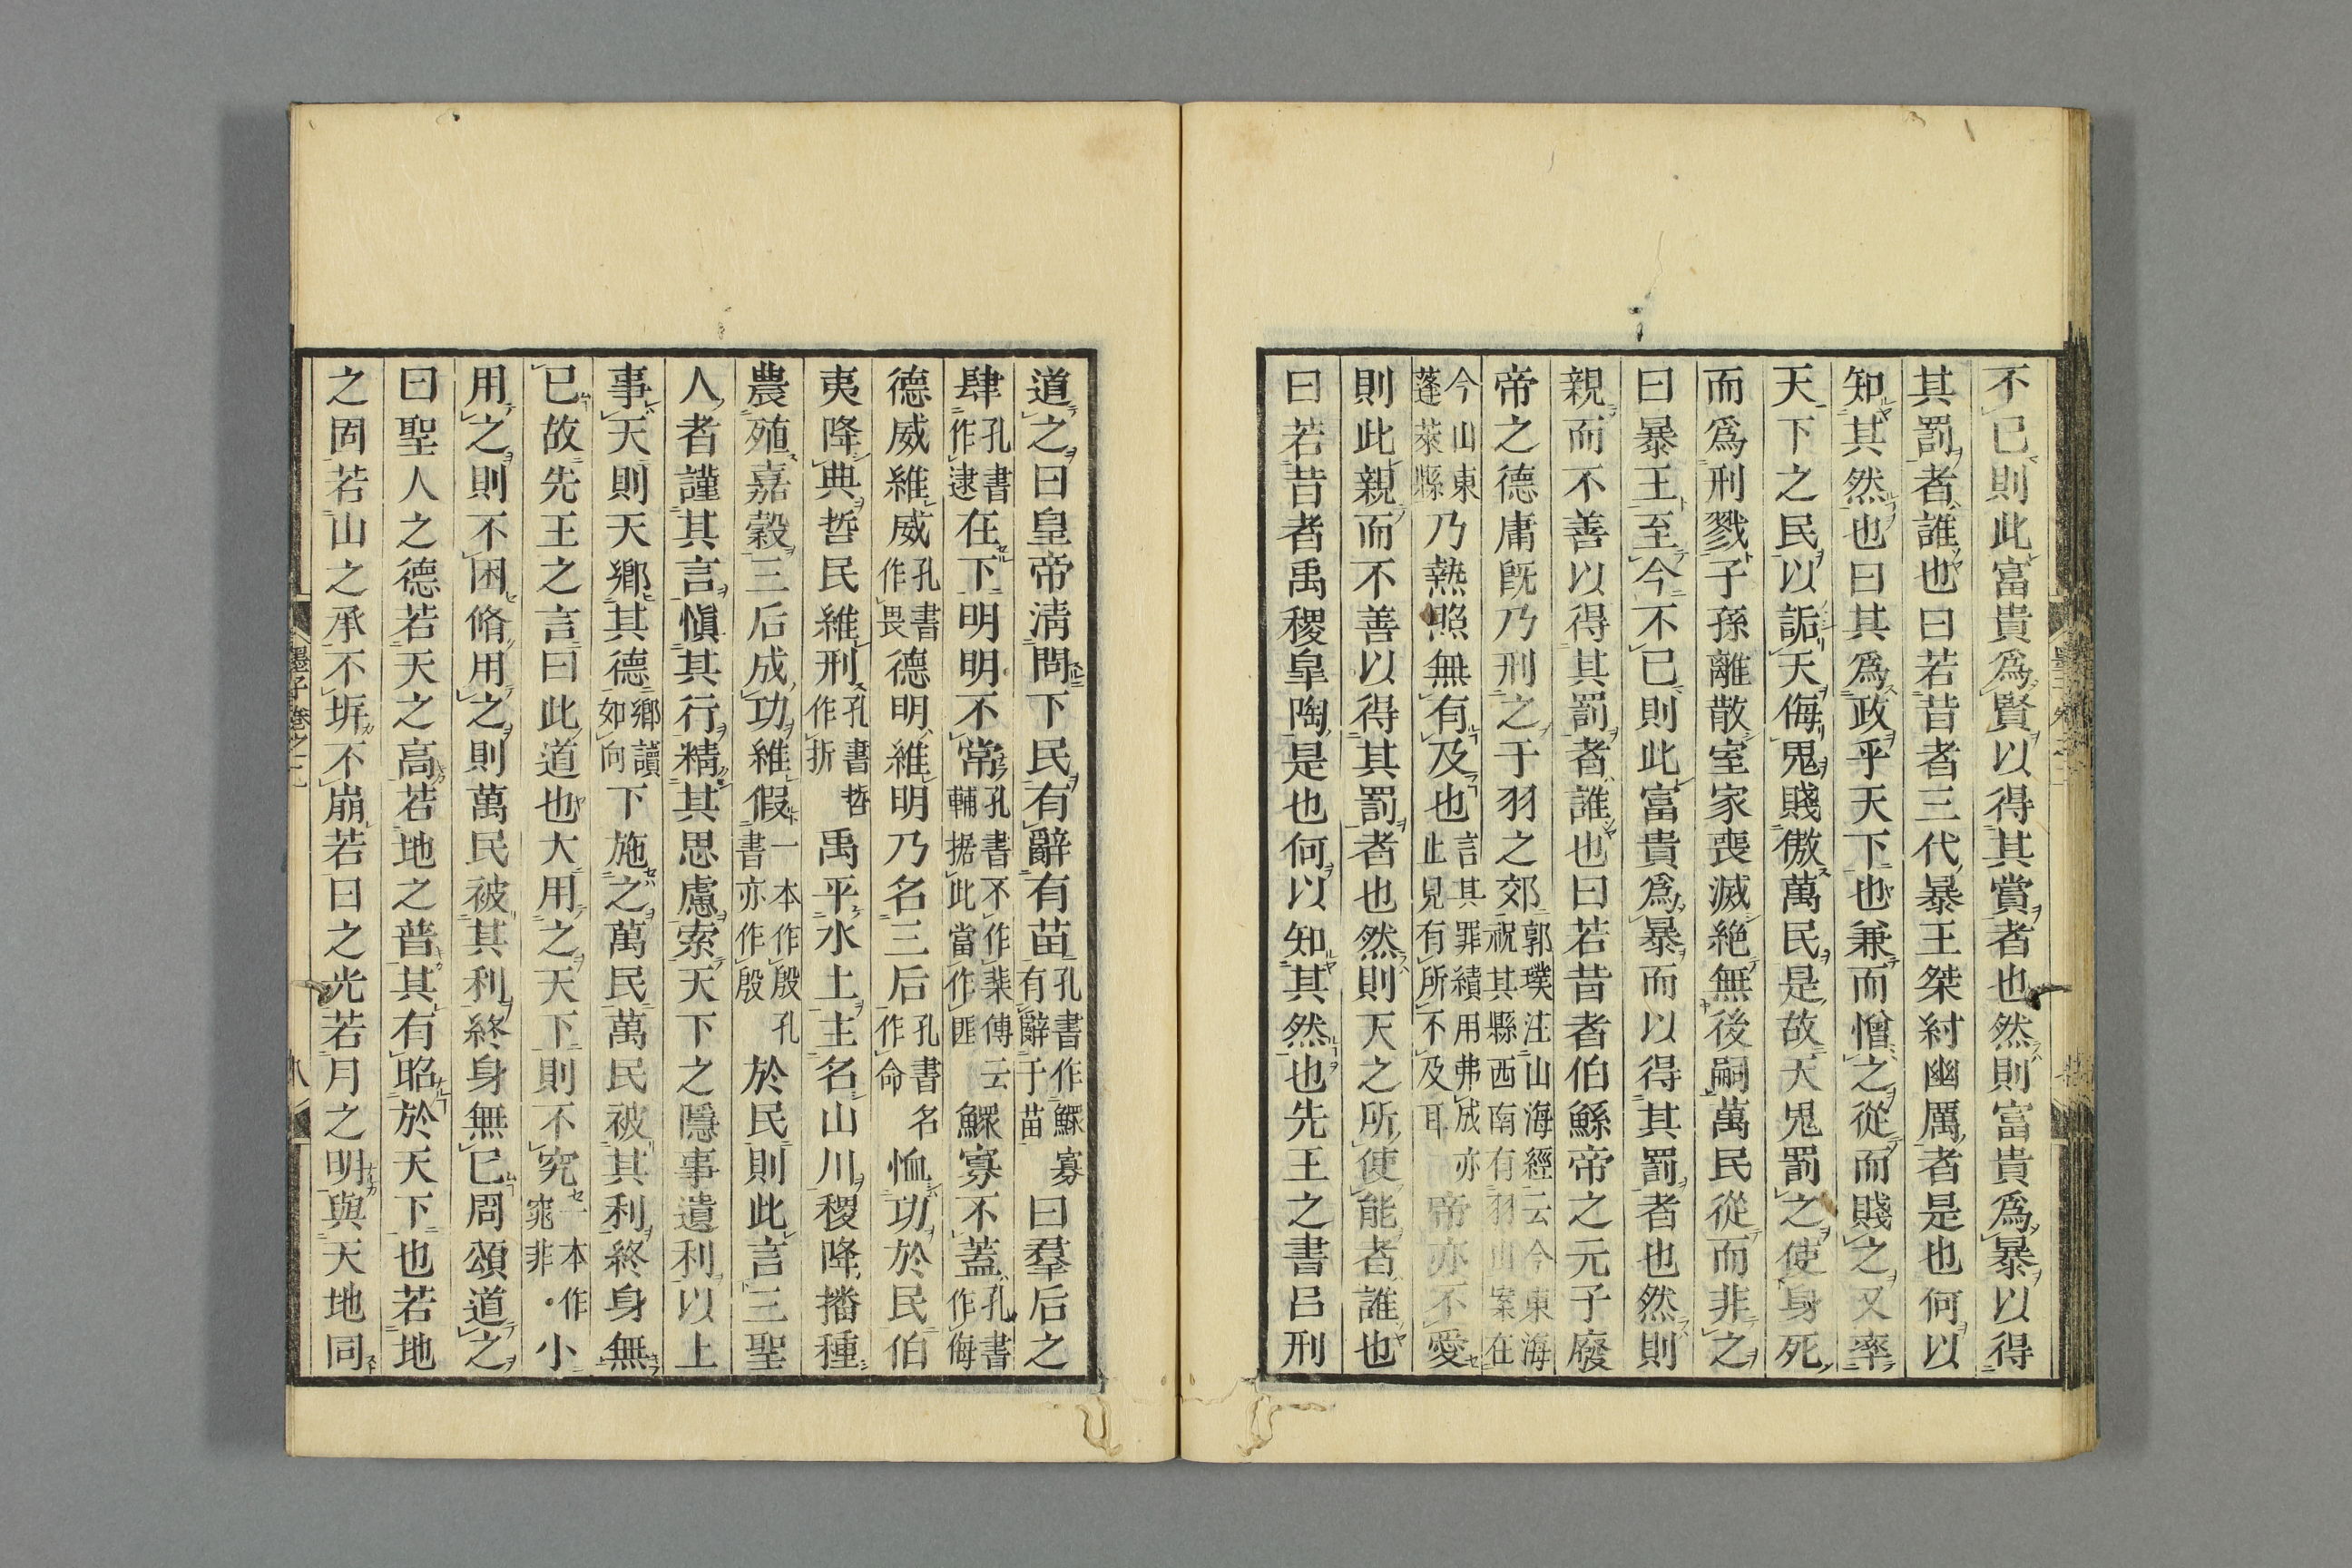 不已則此富貴爲賢以得其賞者也然則富貴爲暴以得
其罰者誰也曰若昔者三代暴王桀紂幽厲者是也何以
知其然也曰其爲政乎天下也兼而憎之從而賤之又率
天下之民以詬天侮鬼賤傲萬民是故天鬼罰之使身死
而爲刑戮子孫離散室家喪滅絕無後嗣萬民從而非之
曰暴王至今不已則此富貴爲暴而以得其罰者也然則
親而不善以得其罰者誰也曰若昔者伯鯀帝之元子廢
帝之德庸旣乃刑之于羽之郊郭璞注山海經云今東海祝其縣西南有羽山案在
今山東蓬萊縣乃熱照無有及也言其罪績用弗成亦止見有所不及耳帝亦不愛
則此親而不善以得其罰者也然則天之所使能者誰也
曰若昔者禹稷皐陶是也何以知其然也先王之書呂刑
道之曰皇帝淸問下民有辭有苗孔書作鰥寡有辭于苗曰羣后之
肆孔書作逮在下明明不常孔書不作棐傳云輔据此當作匪鰥寡不蓋孔書作侮
德威維威孔書作畏德明維明乃名三后孔書名作命恤功於民伯
夷降典哲民維刑孔書哲作折禹平水土主名山川稷降播種
農殖嘉穀三后成功維假一本作殷孔書亦作殷於民則此言三聖
人者謹其言愼其行精其思慮索天下之隱事遺利以上
事天則天鄕其德鄕讀如向下施之萬民萬民被其利終身無
已故先王之言曰此道也大用之天下則不究一本作窕非小
用之則不困脩用之則萬民被其利終身無已周頌道之
曰聖人之德若天之高若地之普其有昭於天下也若地
之固若山之承不坼不崩若日之光若月之明與天地同
墨子卷之二
八